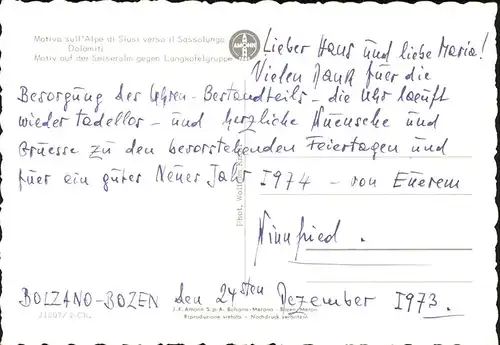 Motivo sull'Alpe di Siusi verso il Sassolungo
Dolomiti
Motiv auf der Seiseralm gegen Langkofelgruppe
AMONN
Lieber Hans und liebe Maria!
Vielen Dank fuer die
Besorgung des Uhren-Bestandteils - die Uhr laeuft
wieder tadellos - und herzliche Wuensche und
Gruesse zu den bevorstehenden Feiertagen und
fuer ein gutes Neues Jahr 1974 - von Euerem
Winnfried.
BOLZANO-BOZEN den 24sten Dezember 1973.
Phot.
J.F. Amonn S.p.A. Bolzano-Merano - Bozen-Meran
Riproduzione vietata - Nachdruck verboten